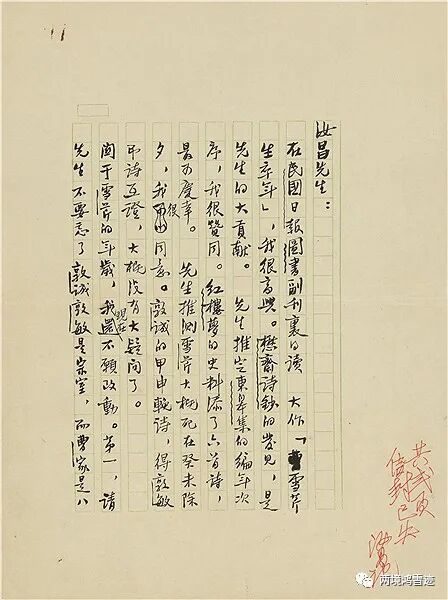 汝昌先生：
在民國日報圖書副刊裏得讀 大作「曹雪芹
生卒年」，我很高興。懋齋詩鈔的發見，是
先生的大貢獻。 先生推定東皋集的編年次
序，我很贊同。紅樓夢的史料添了六首詩，
最可慶幸。 先生推測雪芹大概死在癸未除
夕，我很同意。敦誠的甲申輓詩，得敦敏
弔詩互證，大概沒有大疑問了。
關于雪芹的年歲，我現在還不願改動。第一，請
先生不要忘了敦誠敦敏是宗室，而曹家是八
共弍頁
信封已失
汝昌
两境鸿雪迹